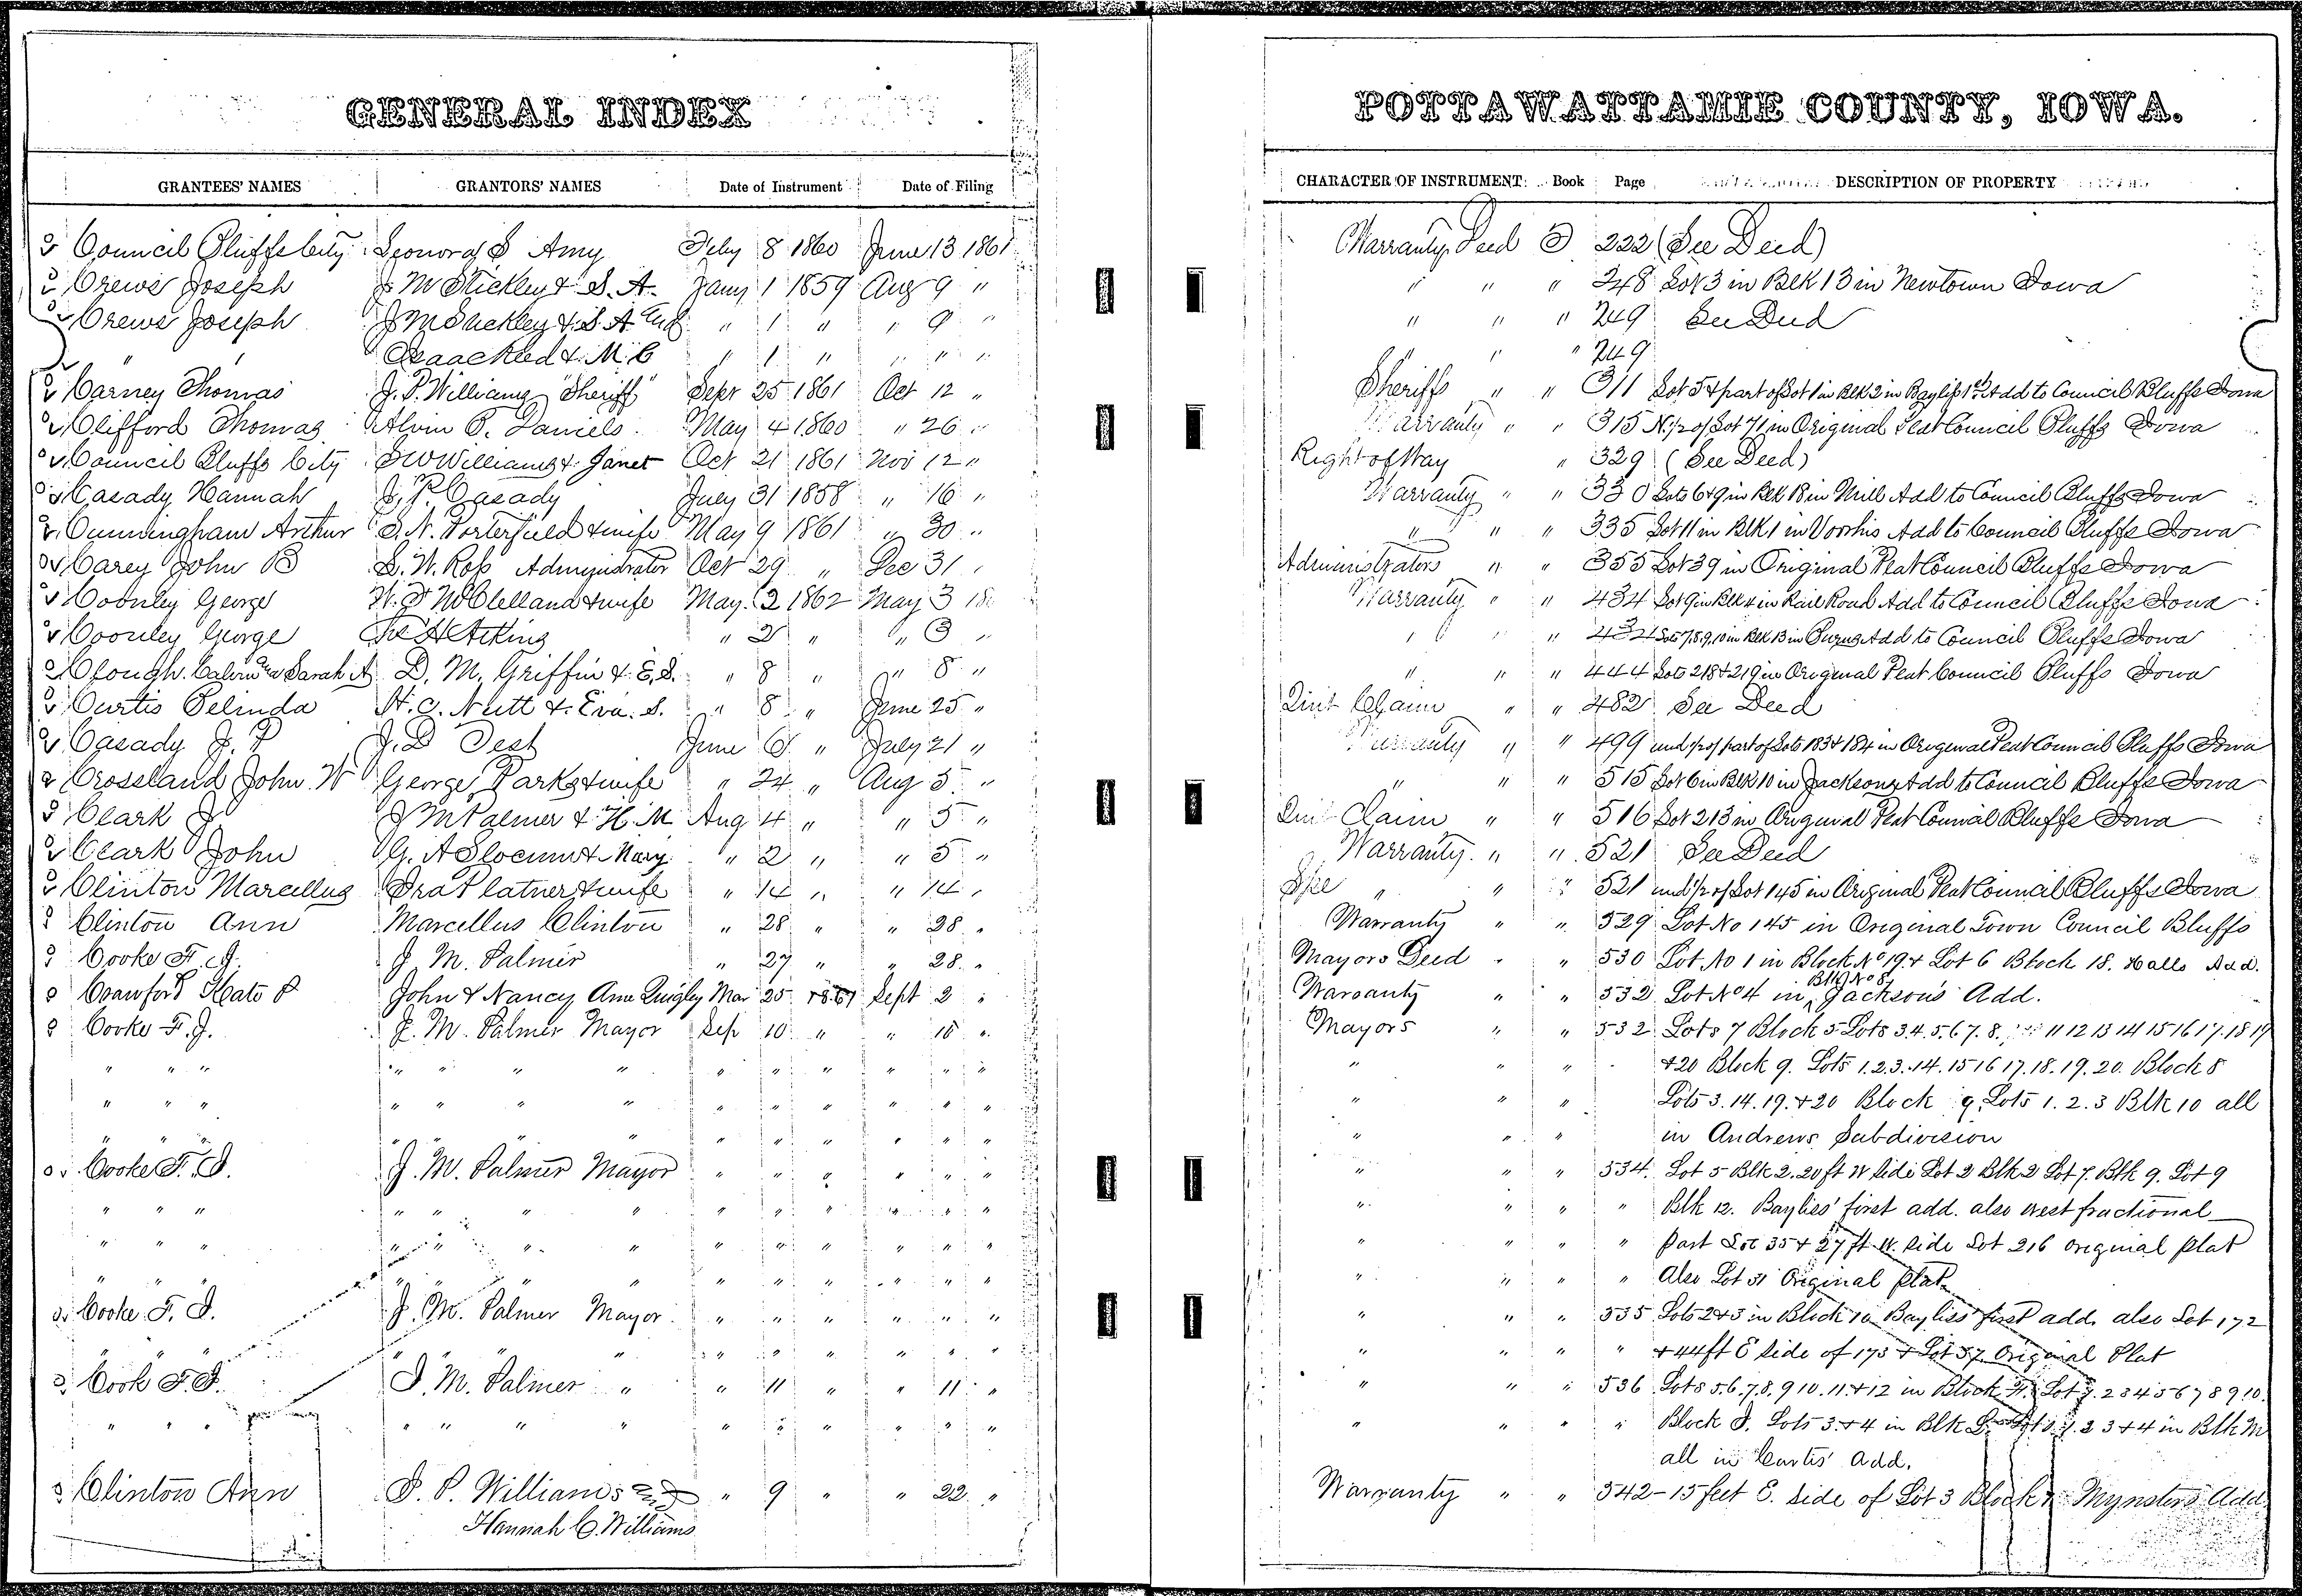 GENERAL INDEX
GRANTEES' NAMES GRANTORS' NAMES Date of Instrument Date of Filing
Council Bluffs City Leonora S Amy July 8 1860 June 13 1861
Crews Joseph J M Stickley & S. A. Jany 1 1859 Aug 9 "
Crews Joseph J M Stickley & S A " 1 " " 9 "
" " Isaac Reed & M. C " 1 " " " "
Carney Thomas J. P. Williams "Sheriff" Sept 25 1861 Oct 12 "
Clifford Thomas Alvin C. Daniels May 4 1860 " 26 "
Council Bluffs City Williams & Janet Oct 21 1861 Nov 12 "
Casady Hannah J. P. Casady July 31 1858 " 16 "
Cunningham Arthur S. N. Porterfield & wife May 9 1861 " 30 "
Carey John B L. W. Ross Administrator Oct 29 " Dec 31 "
Coonley George McClelland & wife May 2 1862 May 3 18
Coonley George " 2 " " 3 "
Clough Calvin & Sarah A D. M. Griffin & E. S. " 8 " " 8 "
Curtis Belinda H. C. Nutt & Eva. S. " 8 " June 25 "
Casady J. P J. D Test June 6 " July 21 "
Crossland John W George Parks & wife " 24 " Aug 5 "
Clark J J M Palmer & H. M Aug 4 " " 5 "
Clark John G. A Slocum & Mary " 2 " " 5 "
Clinton Marcellus Ira Platner & wife " 14 " " 14 "
Clinton Ann Marcellus Clinton " 28 " " 28 "
Cooke F. J. J. M. Palmer " 27 " " 28 "
Crawford Kate P John & Nancy Ann Quigly Mar 25 1861 Sept 2 "
Cooke F. J. J. M. Palmer Mayor Sep 10 " " 10 "
" " " " " " " " " " " " "
" " " " " " " " " " " " "
" " " " " " " " " " "
Cooke F. J. J. M. Palmer Mayor " " " " " "
" " " " " " " " " " " " "
" " " " " " " " " " " " "
" " " " " " " " " " "
Cooke F. J. J. M. Palmer Mayor " " " " " "
" " " " " " " " " " "
Cook F. J. J. M. Palmer " " 11 " " 11 "
" " " " " " " " " " " " "
Clinton Ann J. P. Williams and " 9 " " 22 "
Hannah C. Williams
POTTAWATTAMIE COUNTY, IOWA.
CHARACTER OF INSTRUMENT Book Page DESCRIPTION OF PROPERTY
Warranty Deed 222 (See Deed)
" " " 248 Lot 3 in Blk 13 in Newtown Iowa
" " " 249 See Deed
" " " 249
Sheriffs " " 311 Lot 5 & part of Lot 1 in Blk 2 in Bayliss 1st Add to Council Bluffs Iowa
Warranty " " 315 N 1/2 of Lot 71 in Original Plat Council Bluffs Iowa
Right of Way " 329 (See Deed)
Warranty " " 330 Lots 6 & 9 in Blk 18 in Mill Add to Council Bluffs Iowa
" " " 335 Lot 11 in Blk 1 in Voorhis Add to Council Bluffs Iowa
Administrators " " 355 Lot 39 in Original Plat Council Bluffs Iowa
Warranty " " 434 Lot 9 in Blk 4 in Rail Road Add to Council Bluffs Iowa
" " " 434 Lots 7,8,9,10 in Blk 13 in Add to Council Bluffs Iowa
" " " 444 Lots 218 & 219 in Original Plat Council Bluffs Iowa
Quit Claim " " 482 See Deed
Warranty " " 499 und 1/2 of part of Lots 183 & 184 in Original Plat Council Bluffs Iowa
" " " 515 Lot 6 in Blk 10 in Jacksons Add to Council Bluffs Iowa
Quit Claim " " 516 Lot 213 in Original Plat Council Bluffs Iowa
Warranty " " 521 See Deed
" " " 521 und 1/2 of Lot 145 in Original Plat Council Bluffs Iowa
Warranty " " 529 Lot No 145 in Original Town Council Bluffs
Mayors Deed " " 530 Lot No 1 in Block No 19 & Lot 6 Block 18. Halls Add.
Blk No 8
Warranty " " 532 Lot No 4 in Jackson's Add.
Mayors " " 532 Lots 7 Block 5 Lots 3.4.5.6.7.8. 11 12 13 14 15 16 17.18 19
" " " " & 20 Block 9. Lots 1.2.3.14.15 16 17.18.19.20. Block 8
" " " Lots 3.14.19. & 20 Block 9, Lots 1. 2. 3 Blk 10 all
" " " in Andrews Subdivision
" " " 534. Lot 5 Blk 2. 20 ft W side Lot 2 Blk 2 Lot 7. Blk 9. Lot 9
" " " " Blk 12. Bayliss' first add. also west fractional
" " " " part Lot 35 & 27 ft W. side Lot 216 original plat
" " " " Also Lot 31 Original plat
" " " 535 Lots 2 & 3 in Block 10 Bayliss' first add. also Lot 172
" " " " & 44 ft E side of 173 & Lot 37 Original Plat
" " " 536 Lots 5.6.7.8.9 10.11. & 12 in Block H. Lot 1. 2 3 4 5 6 7 8 9 10.
" " " " Block J. Lots 3. & 4 in Blk L. Lots 1. 2 3 & 4 in Blk M
all in Curtis' Add.
Warranty " " 542 - 15 feet E. side of Lot 3 Block Mynster's Add